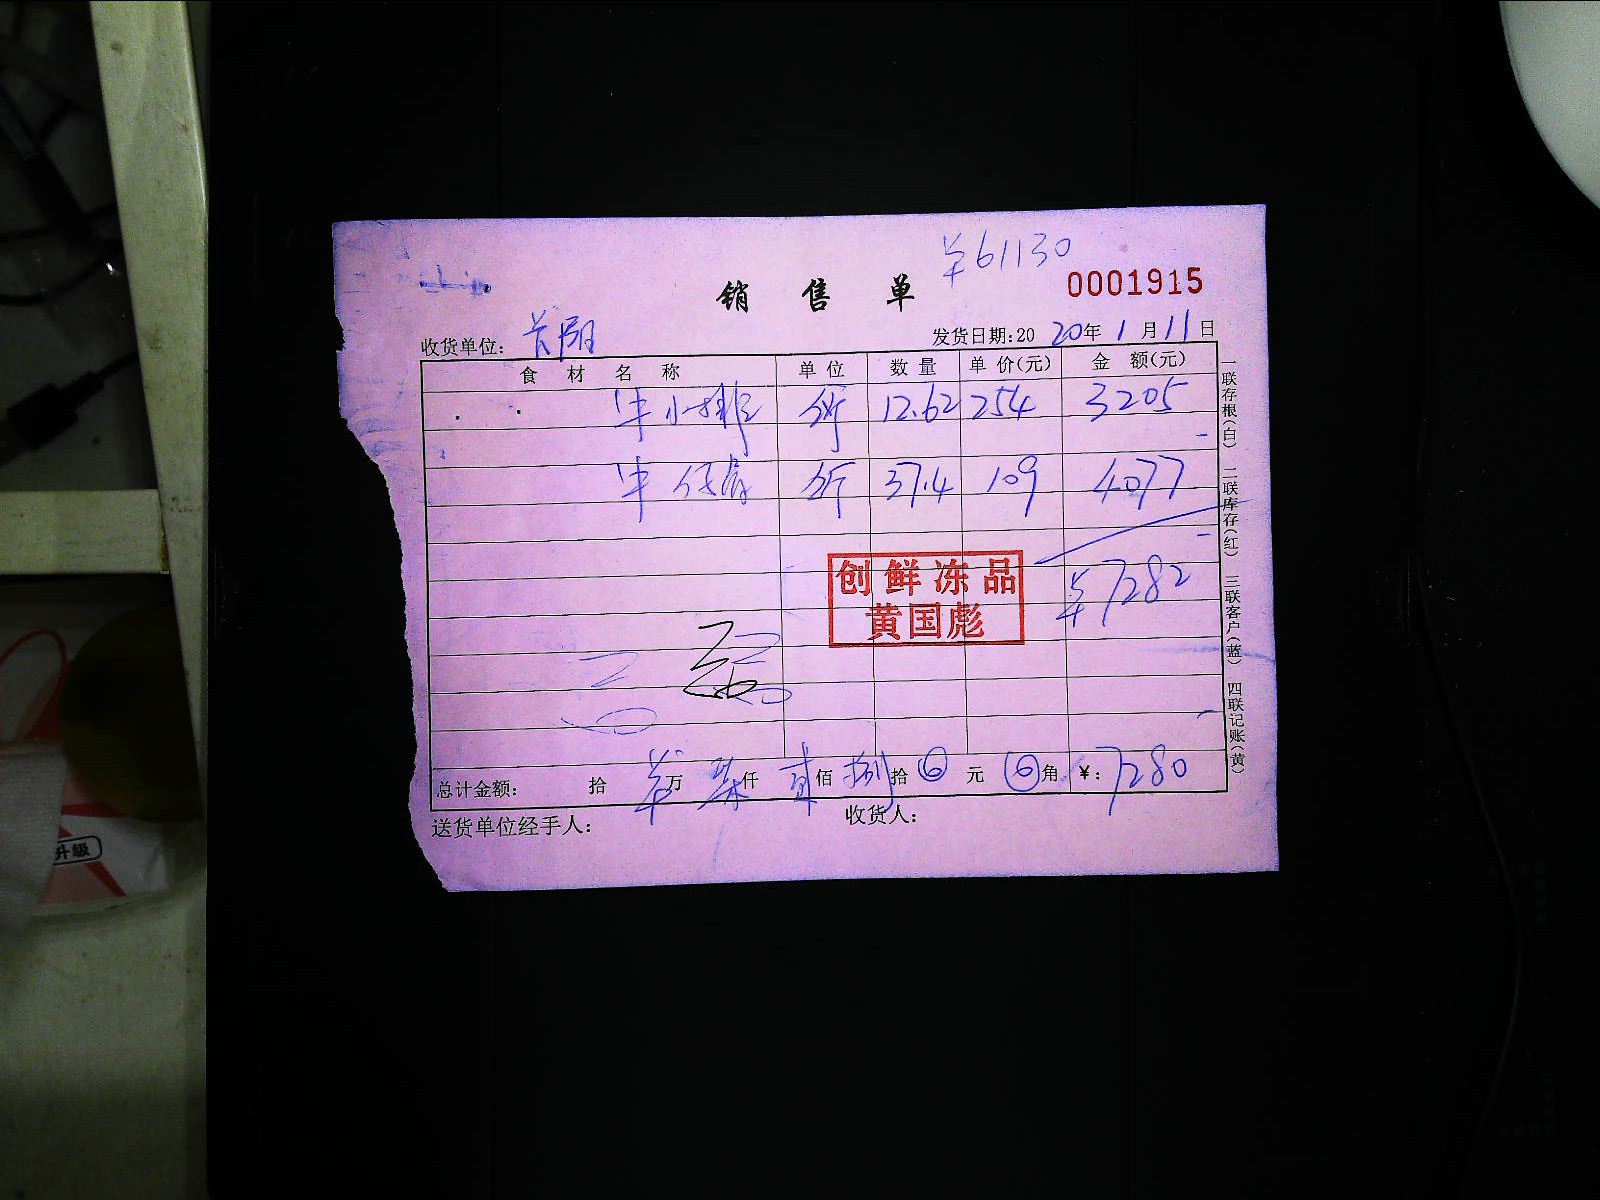 ¥61130
销售单 0001915
收货单位: 发货日期:2020年1月11日
食材名称 单位 数量 单价(元) 金额(元)
牛小排 斤 12.62 254 3205
牛 斤 37.4 109 4077
创鲜冻品
黄国彪
¥7282
总计金额: 拾 万 柒仟 贰佰 捌拾 元 角 ¥:7280
送货单位经手人: 收货人:
一联存根(白) 二联库存(红) 三联客户(蓝) 四联记账(黄)
升级